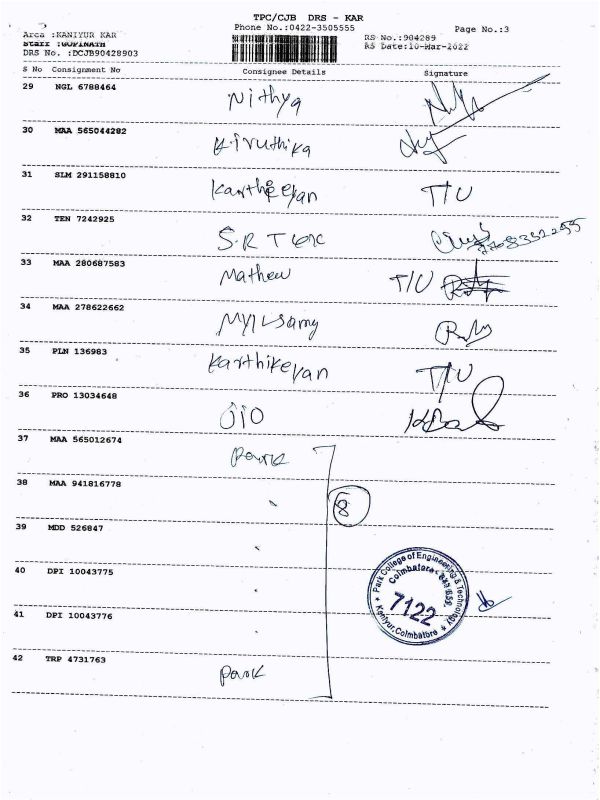 TPC/CJB DRS - KAR
Phone No.:0422-3505555
Page No.:3
Area :KANIYUR KAR
Staff :GOPINATH
DRS No. :DCJB90428903
RS No.:904289
RS Date:10-Mar-2022
S No Consignment No Consignee Details Signature
29 NGL 6788464 Nithya
30 MAA 565044282 Kiruthika
31 SLM 291158810 Kartheeyan T/U
32 TEN 7242925 S.R T
33 MAA 280687583 Mathew T/U
34 MAA 278622662 Mylsamy
35 PLN 136983 Karthikeyan T/U
36 PRO 13034648 JIO
37 MAA 565012674 Park
38 MAA 941816778
8
39 MDD 526847
40 DPI 10043775
41 DPI 10043776
Park College of Engineering & Technology
Coimbatore
7122
Kaniyur, Coimbatore
42 TRP 4731763 Park